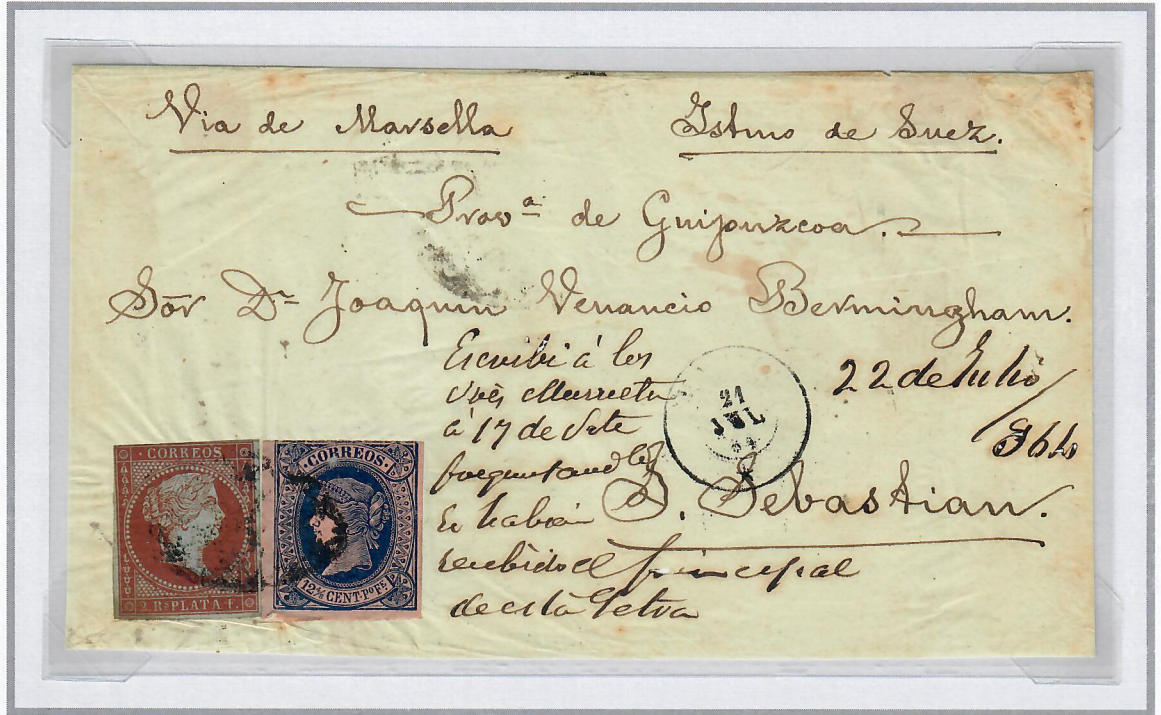 Via de Marsella
Istmo de Suez.
Prov.ª de Guipuzcoa.
Sōr Dn Joaquin Venancio Bermingham.
Escribi á los
Sres Murrieta
á 17 de Sete
preguntandoles
se habian
recibido el principal
de esta letra
22 de Julio
/864
21
JUL
64
S. Sebastian.
CORREOS
2 Rs PLATA F.
CORREOS
12 4/8 CENT. Po Fe